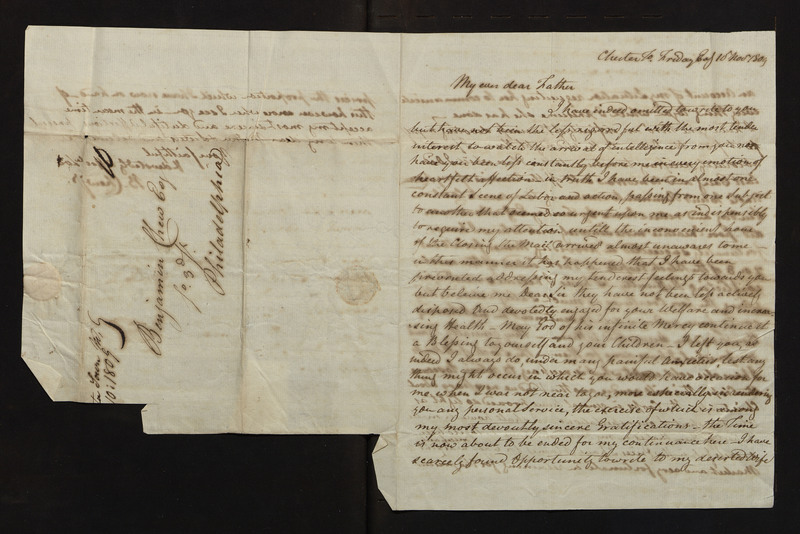 Chester Friday 10 Novr 1809
My ever dear Father
I have indeed omitted to write to you
but have not been the less regardful with the most tender
interest to watch the arrival of intelligence from you nor
have you been less constantly before me in every emotion of
heartfelt affection in truth I have been in almost one
constant Scene of Labor and action, passing from one Subject
to another that seemed so urgent upon me as indispensibly
to require my attention untill the inconvenient hour
of the Closing the Mail arrived almost unawares to me
in this manner it has happened that I have been
prevented addressing my tenderest feelings towards you
but believe me Dear Sir they have not been less actively
disposed and devotedly engaged for your Welfare and increa-
sing Health - May God of his infinite Mercy continue it
a Blessing to yourself and your Children - I left you, as
indeed I always do under many painful Anxieties, lest any
thing might occur in which you would have occasion for
me when I was not near to you, more especially in rendering
you any personal Service, the exercise of which is among
my most devoutly sincere Gratifications - the Time
is now about to be ended for my continuance here I have
scarcely found Opportunity to write to my deserted Wife
10
Benjamin Chew Esqr
So 3d St
Philadelphia